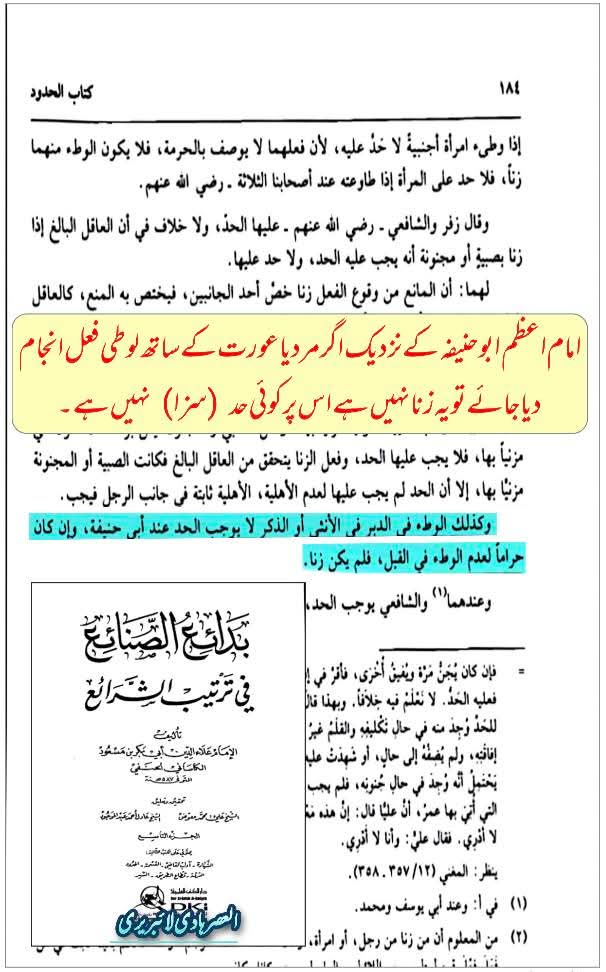 ١٨٤
كتاب الحدود
إذا وطىء امرأة أجنبيةً لا حَدَّ عليه، لأن فعلهما لا يوصف بالحرمة، فلا يكون الوطء منهما
زناً، فلا حد على المرأة إذا طاوعته عند أصحابنا الثلاثة ـ رضي الله عنهم.
وقال زفر والشافعي ـ رضي الله عنهم ـ عليها الحدّ، ولا خلاف في أن العاقل البالغ إذا
زنا بصبية أو مجنونة أنه يجب عليه الحد، ولا حد عليها.
لهما: أن المانع من وقوع الفعل زنا خصْ أحد الجانبين، فيختص به المنع، كالعاقل
امام اعظم ابو حنیفہ کے نزدیک اگر مرد یا عورت کے ساتھ لوطی فعل انجام
دیا جائے تو یہ زنا نہیں ہے اس پر کوئی حد (سزا) نہیں ہے۔
مزنياً بها، فلا يجب عليها الحد، وفعل الزنا يتحقق من العاقل البالغ فكانت الصبية أو المجنونة
مزنيًا بها، إلا أن الحد لم يجب عليها لعدم الأهلية، الأهلية ثابتة فى جانب الرجل فيجب.
وكذلك الوطء في الدبر في الأنثى أو الذكر لا يوجب الحد عند أبي حنيفة، وإن كان
حراماً لعدم الوطء في القبل، فلم يكن زنا.
وعندهما(١) والشافعي يوجب الحد،
= فإن كان يُجَنُّ مَرَّة ويُفيقُ أُخْرَى، فأقرّ في
فعليه الحَدُّ. لا نَعْلَمُ فيه خِلَافاً. وبهذا قال
للحَدِّ وُجِدَ منه في حالِ تَكْلِيفِهِ والقَلَمُ غيرُ
إفاقَتِهِ، ولم يُضِفْهُ إلى حالٍ، أو شَهِدَتْ عليه
يَحْتَمِلُ أنَّه وُجِدَ في حالِ جُنونِه، فلم يجب
التي أُتِيَ بها عمرُ، أن عليًّا قال: إنَّ هذه
لا أَدْرِي. فقال عليّ: وأنا لا أَدْرِي.
ينظر: المغني (١٢/ ٣٥٧، ٣٥٨).
(١) في أ: وعند أبي يوسف ومحمد.
(٢) من المعلوم أن من زنا من رجل، أو امرأة،
بدائع الصنائع
في ترتيب الشرائع
تأليف
الإمام علاء الدين أبي بكر بن مسعود
الكاساني الحنفي
المتوفى ٥٨٧ هـ سنة
تحقيق وتعليق
الشيخ علي محمد معوض الشيخ عادل أحمد عبد الموجود
الجزء التاسع
DKi
العصر ہادی لائبریری